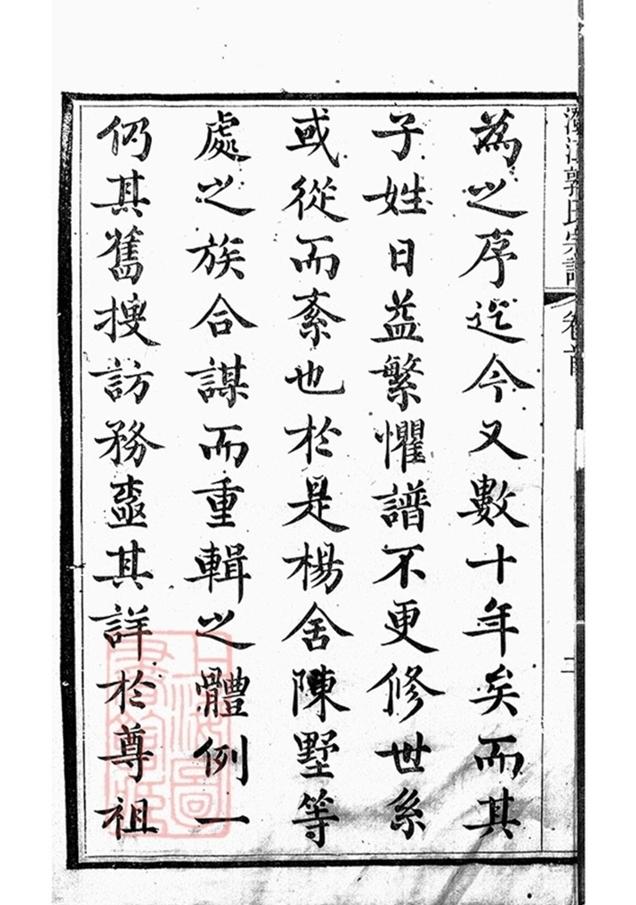 為之序迄今又數十年矣而其
子姓日益繁懼譜不更修世系
或從而紊也於是楊舍陳墅等
處之族合謀而重輯之體例一
仍其舊搜訪務盡其詳於尊祖
江郭氏宗譜
卷首
二
上海圖
書館藏